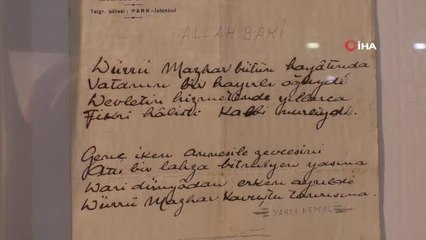 Telgr. adresi: PARK-İstanbul
İHA
ALLAH BAKİ
Mazhar bütün hayâtında
Vatanın bir hayırlı oğluydu
Devletin hizmetinde yıllarca
Fikri hâlisdi Kalbi nurluydu.
Genç iken annesile zevcesini
bir lahza bitmiyen yasına
dünyâdan erken ayrıldı
Mazhar Kavuştu Tanrısına.
YAHYA KEMAL